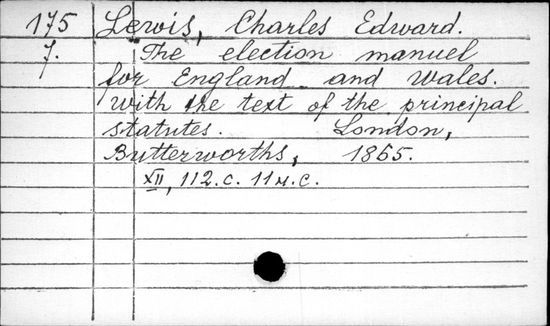 175 Lewis, Charles Edward.
7. The election manuel
for England and Wales.
With the text of the principal
statutes. London,
Butterworths, 1865.
XII, 112.c. 11н.c.